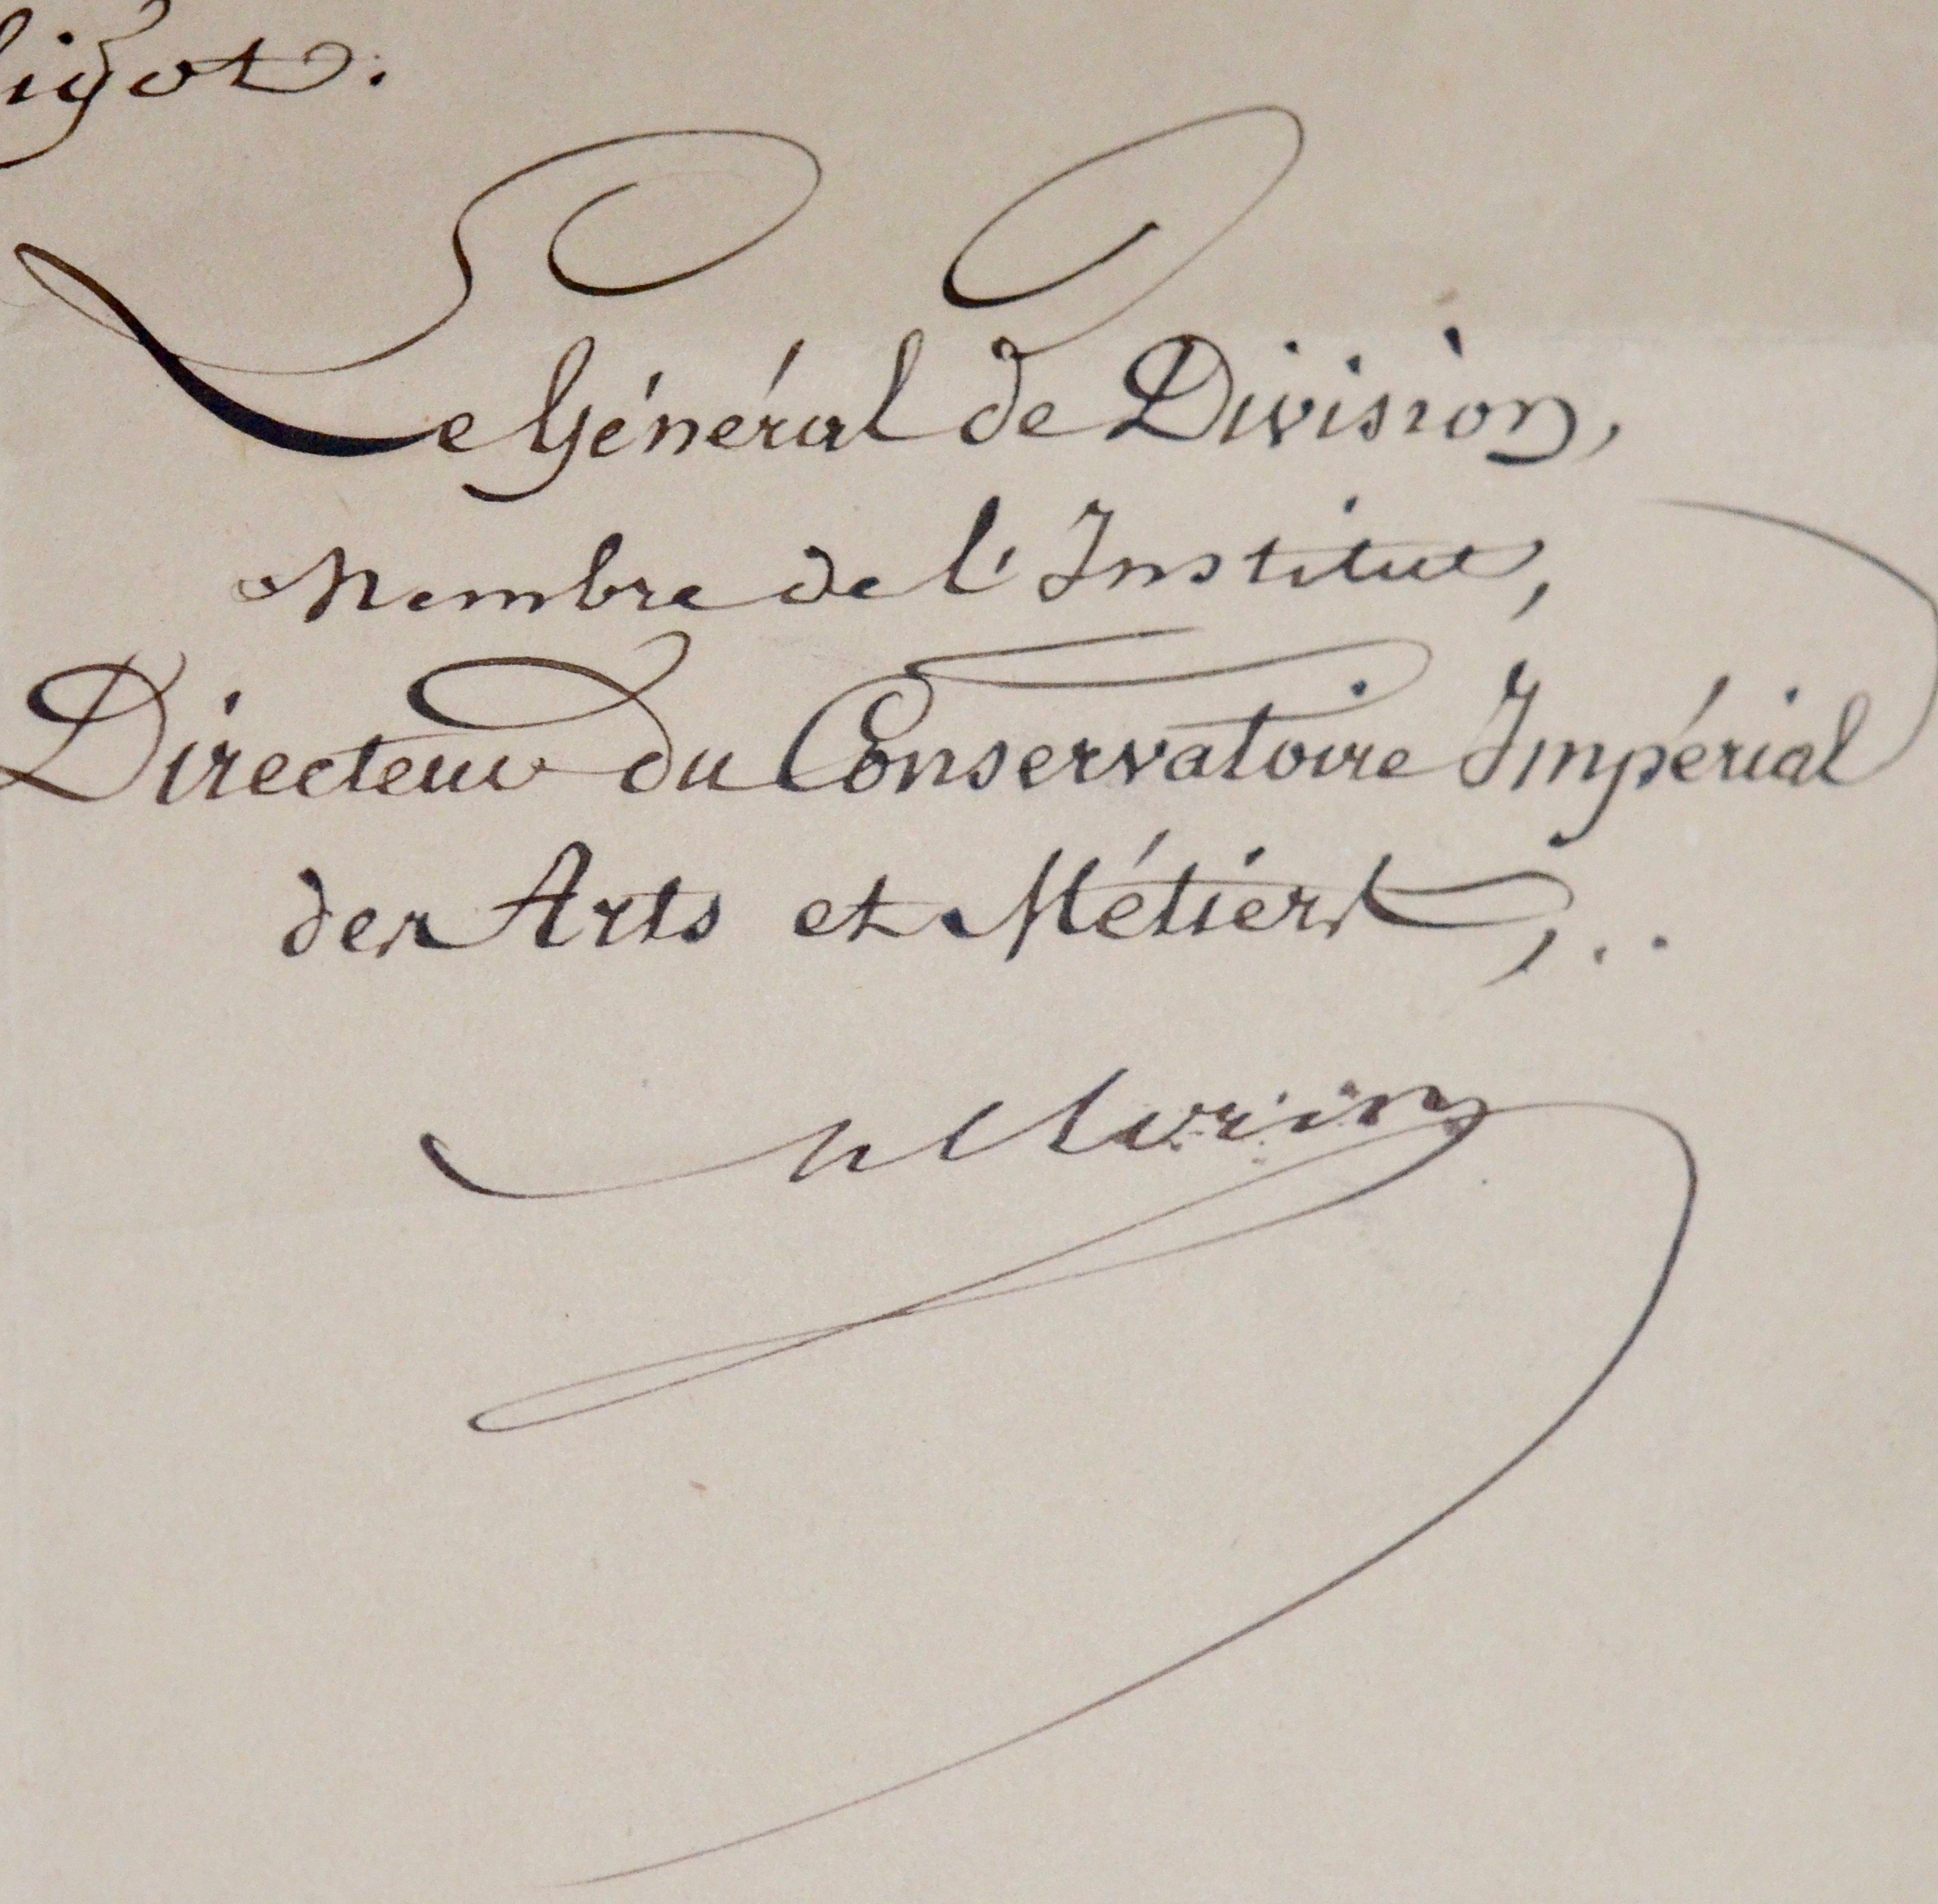 ligot.
Le Général de Division,
Membre de l'Institut,
Directeur du Conservatoire Impérial
des Arts et Métiers,..
A Morin